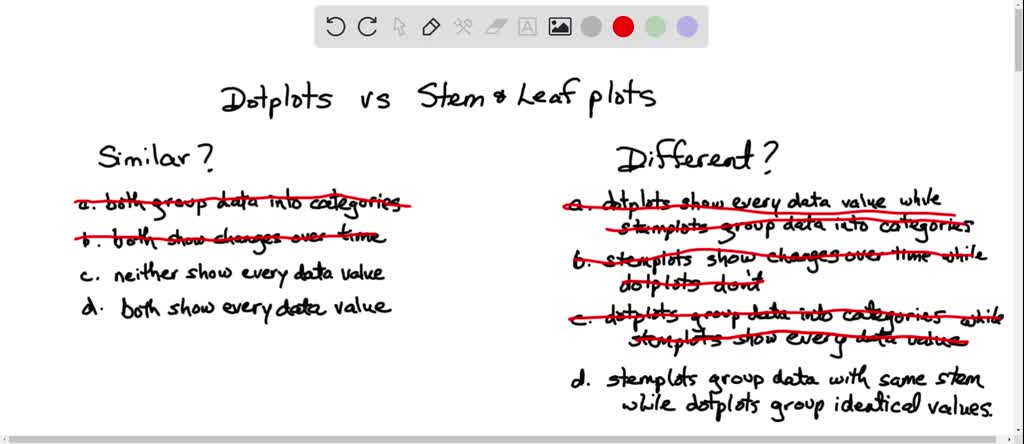 Dotplots vs Stem & Leaf plots
Similar?
a. both group data into categories
b. both show changes over time
c. neither show every data value
d. both show every data value
Different?
a. dotplots show every data value while
stemplots group data into categories
b. stemplots show changes over time while
dotplots don't
c. dotplots group data into categories while
stemplots show every data value
d. stemplots group data with same stem
while dotplots group identical values.